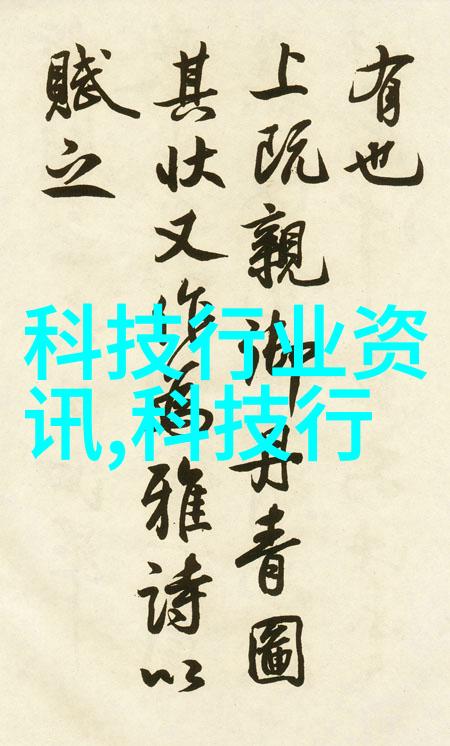 有也
上既親御丹青圖
其状又作為雅詩以
賦之
科技行业资
讯,科技行